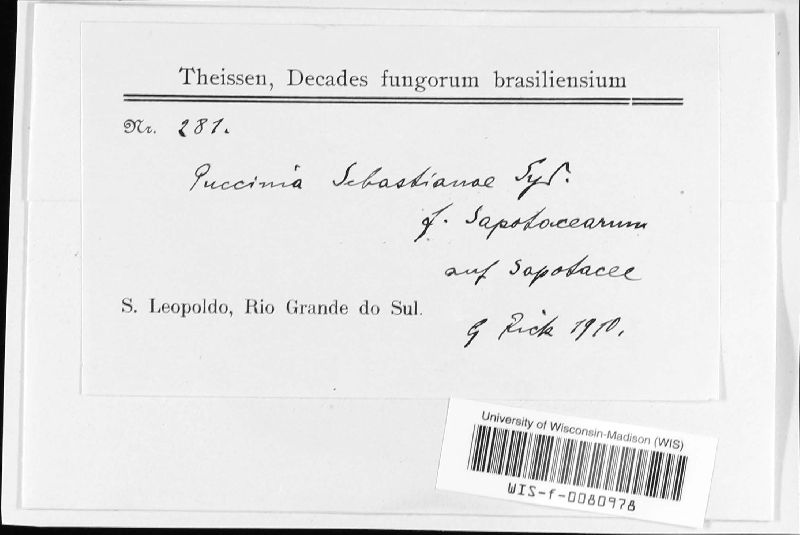 Theissen, Decades fungorum brasiliensium
Nr. 281.
Puccinia Sebastianae Syd.
f. Sapotacearum
auf Sapotacee
S. Leopoldo, Rio Grande do Sul.
G Rick 1910.
University of Wisconsin-Madison (WIS)
WIS-f-0080978